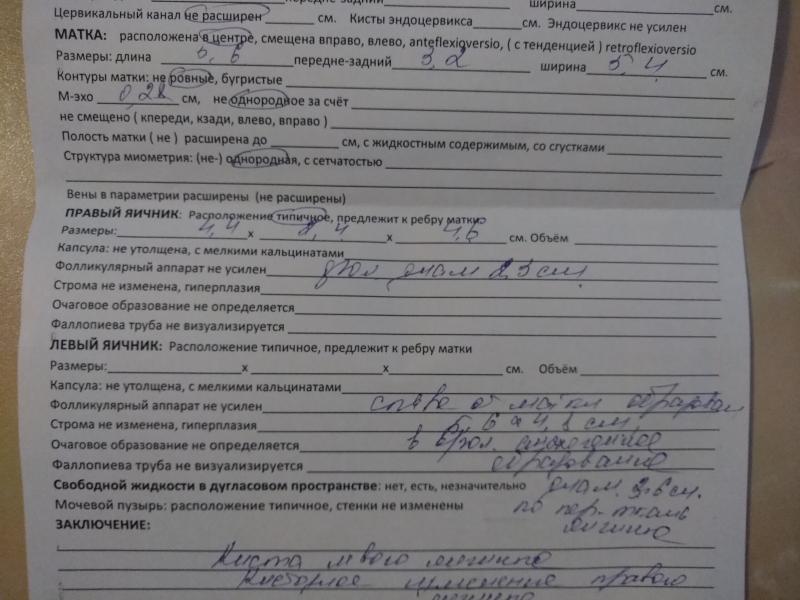 передне-задний ширина см.
Цервикальный канал не расширен см. Кисты эндоцервикса см. Эндоцервикс не усилен
МАТКА: расположена в центре, смещена вправо, влево, anteflexioversio, ( с тенденцией ) retroflexioversio
Размеры: длина 5,6 передне-задний 3,2 ширина 5,4 см.
Контуры матки: не ровные, бугристые
М-эхо 0,28 см, не однородное за счёт
не смещено ( кпереди, кзади, влево, вправо )
Полость матки ( не ) расширена до см, с жидкостным содержимым, со сгустками
Структура миометрия: (не-) однородная, с сетчатостью
Вены в параметрии расширены (не расширены)
ПРАВЫЙ ЯИЧНИК: Расположение типичное, предлежит к ребру матки
Размеры: 4,4 х х см. Объём
Капсула: не утолщена, с мелкими кальцинатами
Фолликулярный аппарат не усилен фол диам 2,3 см
Строма не изменена, гиперплазия
Очаговое образование не определяется
Фаллопиева труба не визуализируется
ЛЕВЫЙ ЯИЧНИК: Расположение типичное, предлежит к ребру матки
Размеры: х х см. Объём
Капсула: не утолщена, с мелкими кальцинатами
Фолликулярный аппарат не усилен от матки образован
Строма не изменена, гиперплазия см
Очаговое образование не определяется в
Фаллопиева труба не визуализируется образование
Свободной жидкости в дугласовом пространстве: нет, есть, незначительно диам. см.
Мочевой пузырь: расположение типичное, стенки не изменены по пер. ткань
яичника
ЗАКЛЮЧЕНИЕ:
Киста левого яичника
Кистозное изменение правого
яичника